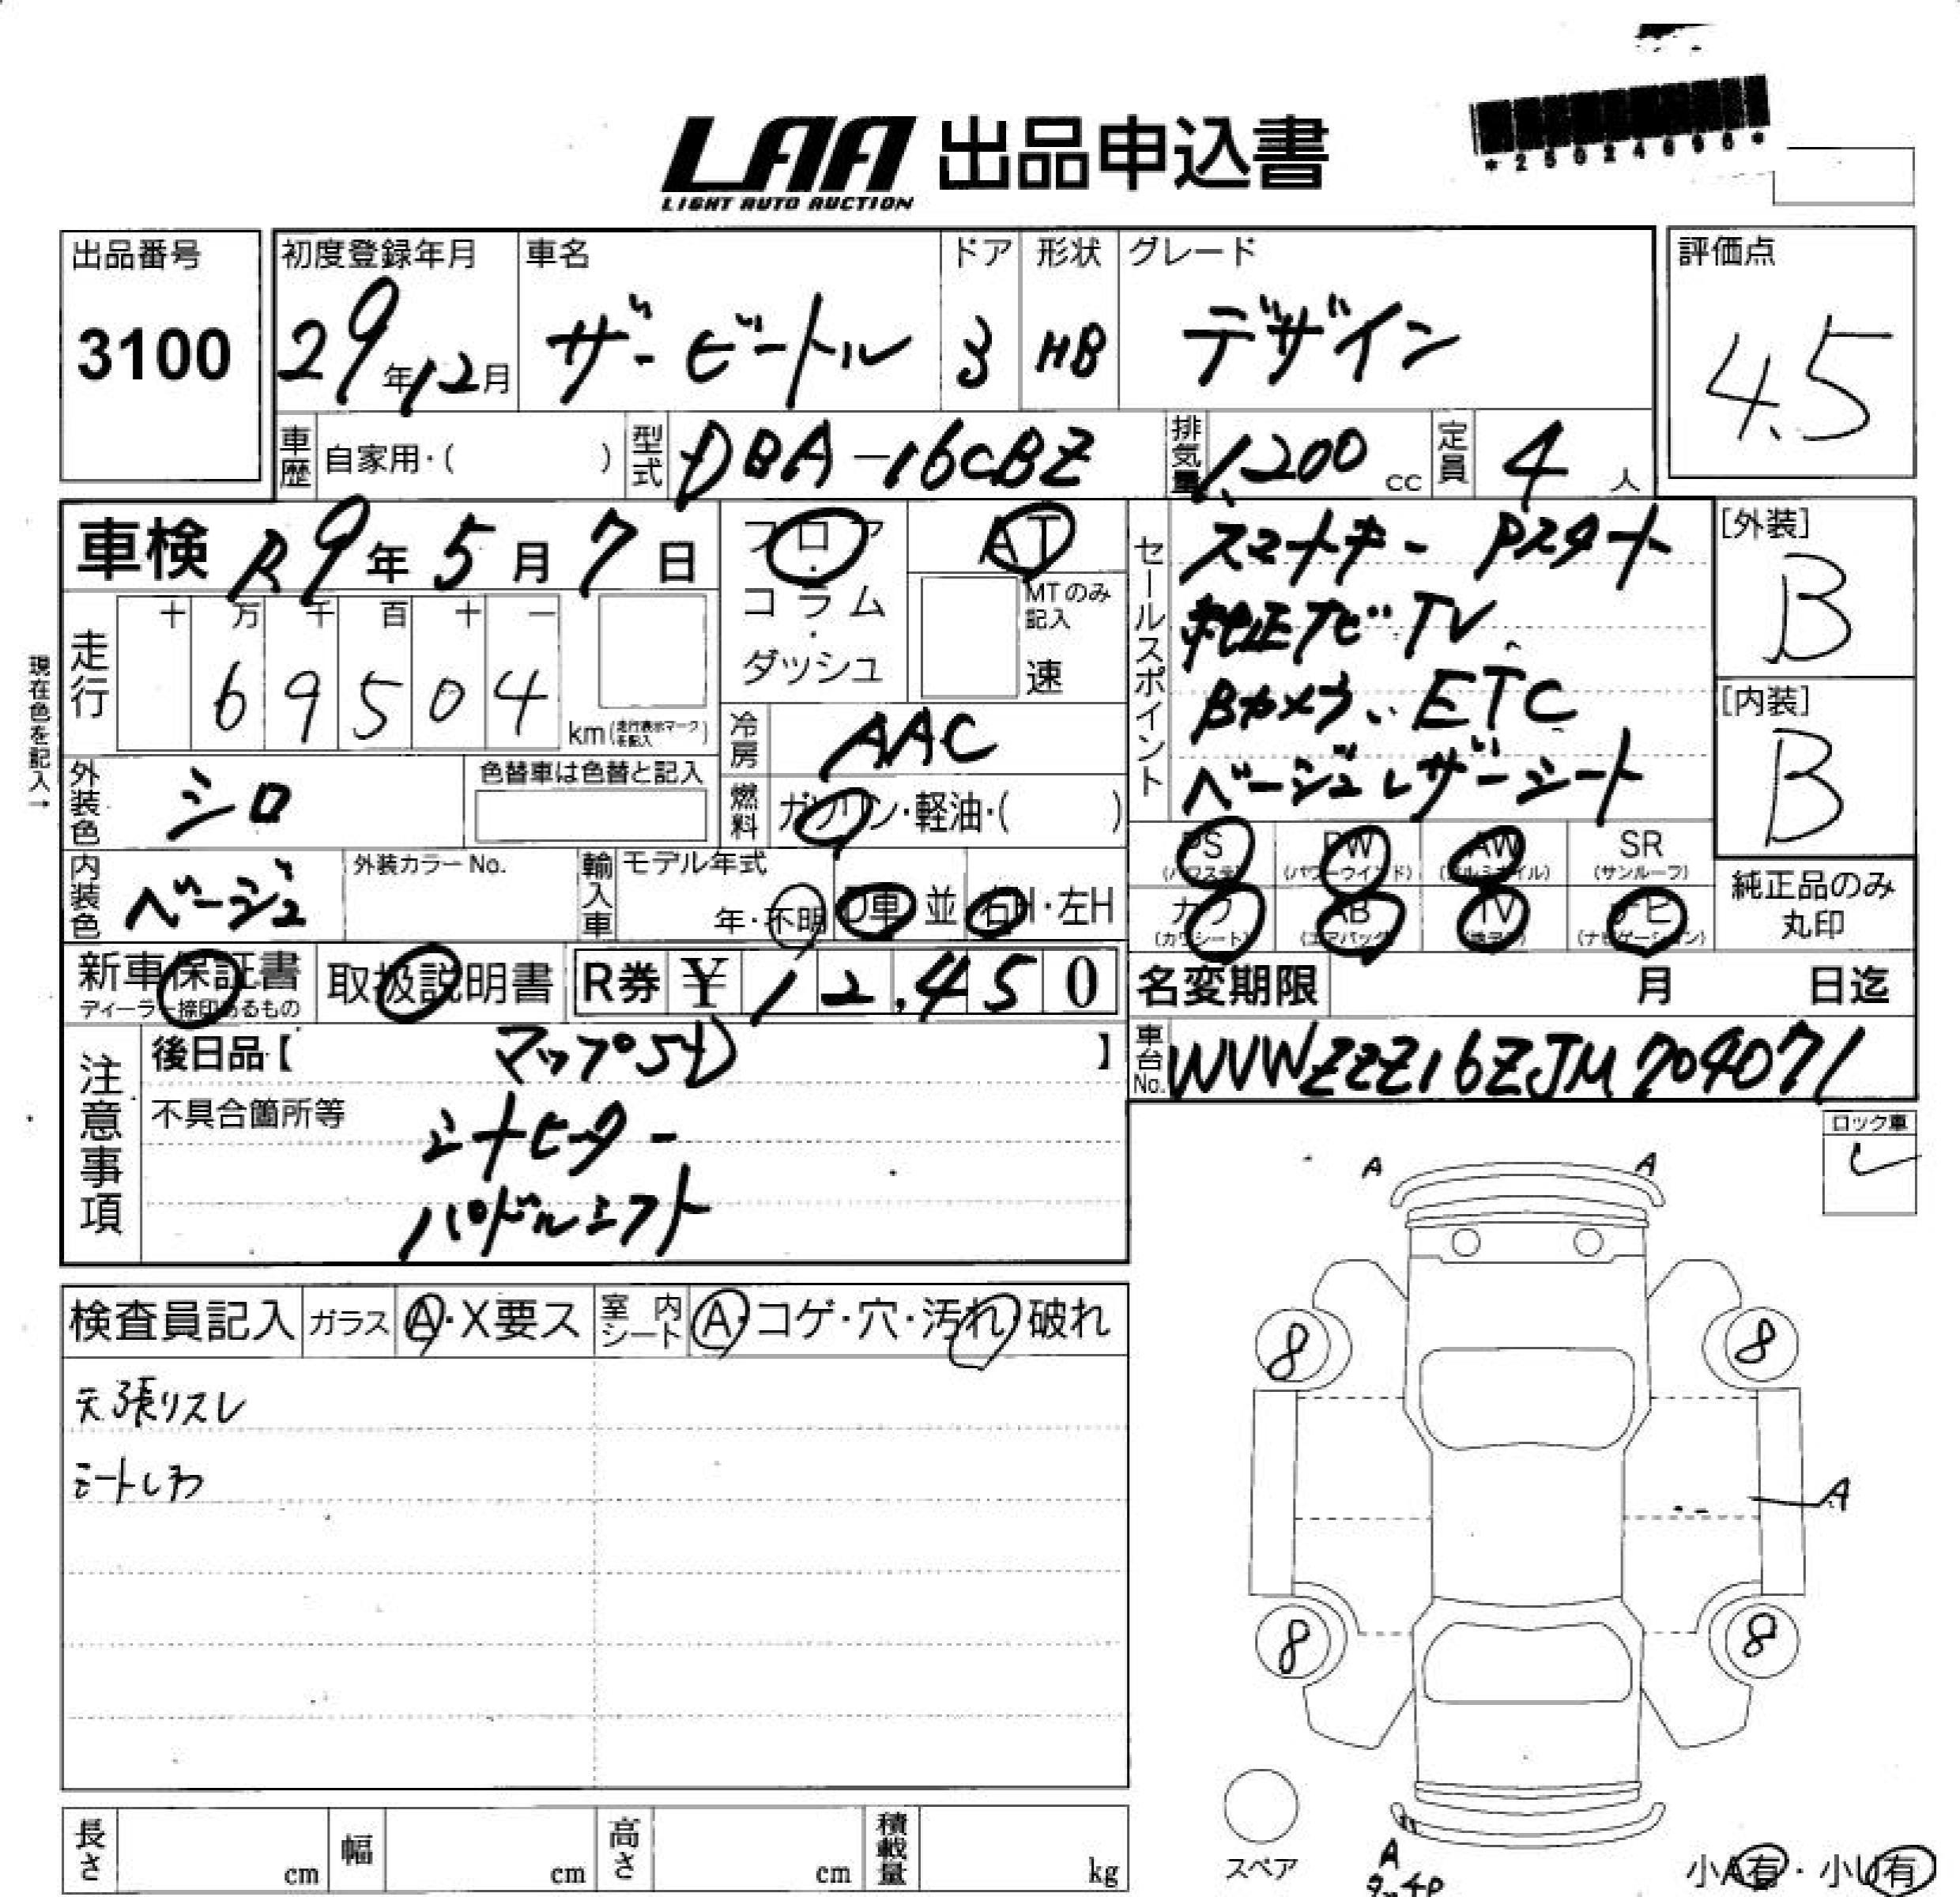 LAA 出品申込書
LIGHT AUTO AUCTION
*25024696*
出品番号
3100
初度登録年月
29年12月
車名
ザ・ビートル
ドア
3
形状
HB
グレード
デザイン
評価点
4.5
車歴 自家用・( )
型式 DBA-16CBZ
排気量 1,200 cc
定員 4 人
車検 R9年5月7日
フロア・コラム・ダッシュ
AT
MTのみ記入
速
走行
十 万 千 百 十 一
6 9 5 0 4
km(走行表示マークを記入)
現在色を記入→
冷房 AAC
燃料 ガソリン・軽油・( )
外装色 シロ
色替車は色替と記入
内装色 ベージュ
外装カラーNo.
輸入車 モデル年式
年・不明 D車 並 右H・左H
セールスポイント
スマートキー Pスタート
純正ナビ TV
Bカメラ、ETC
ベージュレザーシート
[外装]
B
[内装]
B
PS (パワステ)
PW (パワーウインド)
AW (アルミホイル)
SR (サンルーフ)
カワ (カワシート)
AB (エアバック)
TV
ナビ (ナビゲーション)
純正品のみ丸印
新車保証書
ディーラー捺印あるもの
取扱説明書
R券 ¥ 12,450
名変期限 月 日迄
車台No. WVWZZZ16ZJM704071
注意事項
後日品【 マップSD 】
不具合箇所等
シートヒーター
パドルシフト
ロック車
検査員記入
ガラス A・X要ス
室内シート A・コゲ・穴・汚れ・破れ
天張りスレ
シートしわ
A
A
8
8
A
8
8
スペア
A
小A有・小U有
長さ cm
幅 cm
高さ cm
積載量 kg